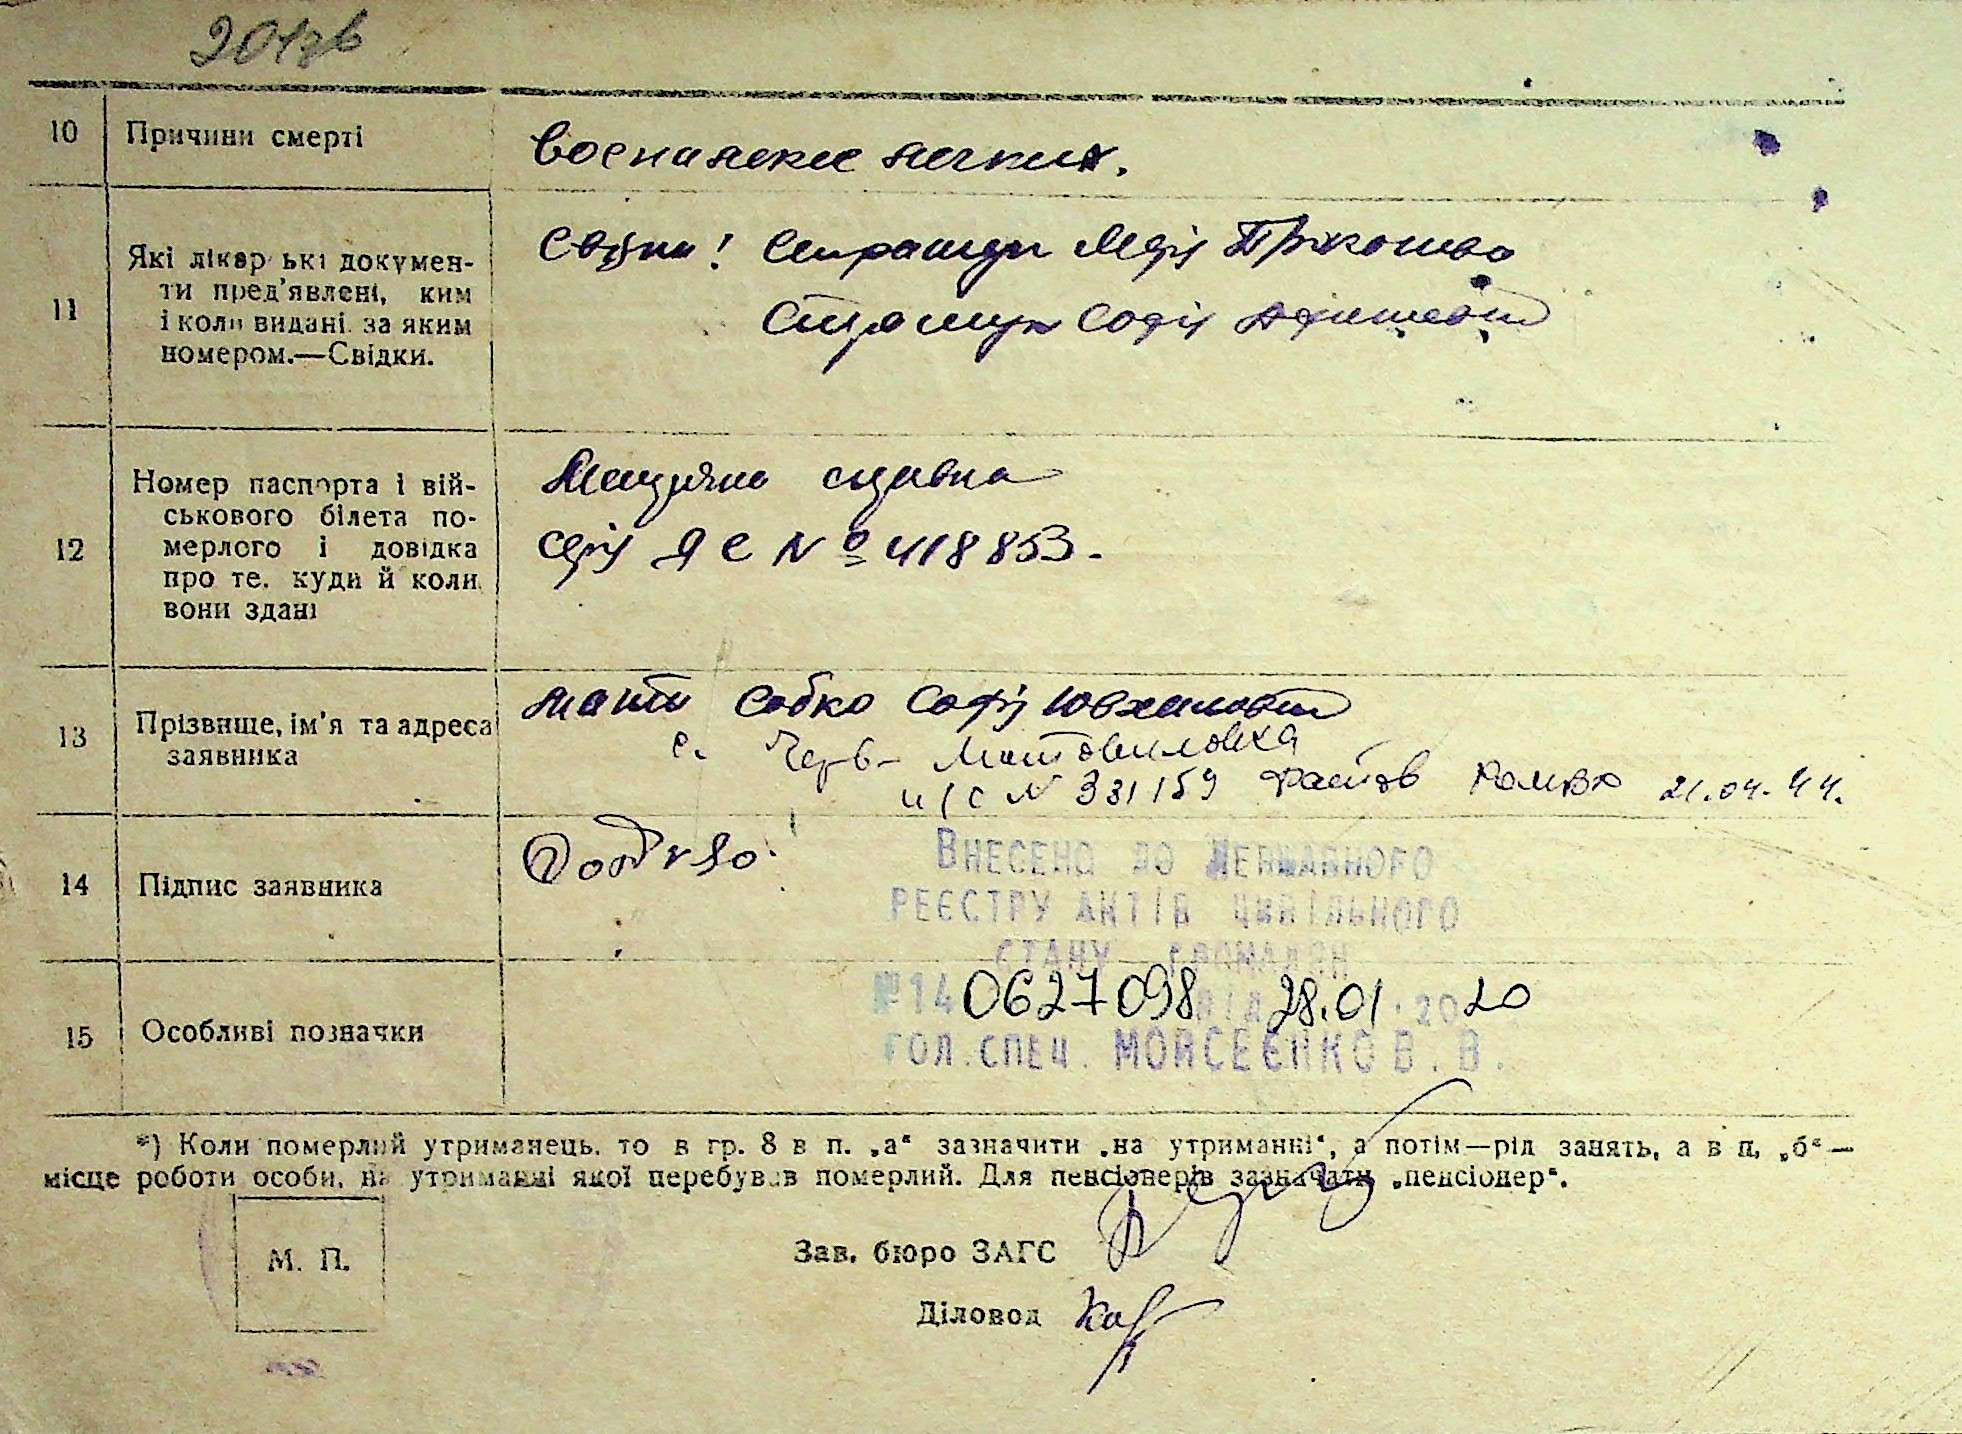 201зв
10 Причини смерті
воспаление легких.
11 Які лікарські докумен-
ти пред'явлені, ким
і коли видані за яким
номером.—Свідки.
Свідки: Марія
Софія
12 Номер паспорта і вій-
ськового білета по-
мерлого і довідка
про те, куди й коли
вони здані
справка
серія ЯС № 418853.
13 Прізвище, ім'я та адреса
заявника
мати Собко Софія Юхимовна
с. Черв- Мотовиловка
и/с № 331159 Фастов 21.04.44.
14 Підпис заявника
15 Особливі позначки
Внесено до Державного
реєстру актів цивільного
стану громадян
№14 0627098 від 28.01.2020
Гол.спец. Моисеєнко В.В.
*) Коли померлий утриманець, то в гр. 8 в п. „а“ зазначити „на утриманні“, а потім—рід занять, а в п. „б“—
місце роботи особи, на утриманні якої перебував померлий. Для пенсіонерів зазначати „пенсіонер“.
М. П.
Зав. бюро ЗАГС
Діловод